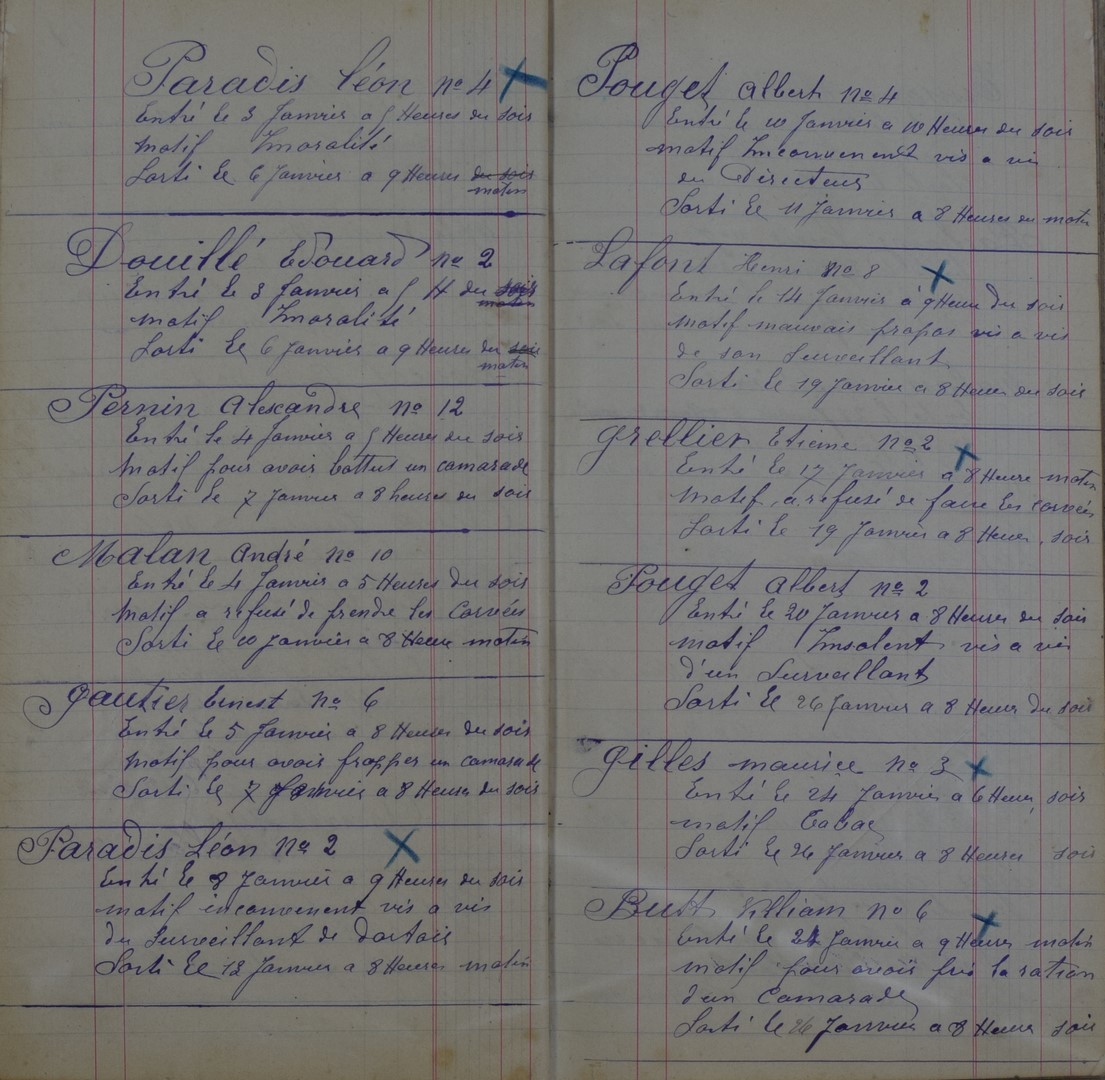 Paradis Léon no 4
Entré le 3 Janvier a 5 Heures du soir
motif Imoralité
Sorti le 6 Janvier a 9 Heures du soir
matin
Douillé Edouard no 2
Entré le 3 Janvier a 5 H du soir
matin
motif Imoralité
Sorti le 6 Janvier a 9 Heures du soir
matin
Pernin Alexandre no 12
Entré le 4 Janvier a 5 Heures du soir
motif pour avoir battus un camarade
Sorti le 7 Janvier a 8 heures du soir
Malan André no 10
Entré le 4 Janvier a 5 Heures du soir
motif a refusé de prendre les corvées
Sorti le 10 Janvier a 8 Heure matin
Gautier Ernest no 6
Entré le 5 Janvier a 8 Heures du soir
motif pour avoir frapper un camarade
Sorti le 7 Janvier a 8 Heures du soir
Paradis Léon no 2
Entré le 8 Janvier a 9 Heures du soir
motif inconvenent vis a vis
du Surveillant de dortoir
Sorti le 12 Janvier a 8 Heures matin
Pouget Albert no 4
Entré le 10 Janvier a 10 Heures du soir
motif Inconvenent vis a vis
du Directeur
Sorti le 11 Janvier a 8 Heures du matin
Lafont Henri no 8
Entré le 14 Janvier à 9 Heure du soir
motif mauvais propos vis a vis
de son Surveillant
Sorti le 19 Janvier a 8 Heures du soir
Grellier Etienne no 2
Entré le 17 Janvier a 8 Heure matin
motif a refusé de faire les corvées
Sorti le 19 Janvier a 8 Heures soir
Pouget Albert no 2
Entré le 20 Janvier a 8 Heures du soir
motif Insolent vis a vis
d'un Surveillant
Sorti le 26 Janvier a 8 Heures du soir
Gilles maurice no 3
Entré le 24 Janvier a 6 Heures soir
motif Tabac
Sorti le 26 Janvier a 8 Heures soir
Butt William no 6
Entré le 24 Janvier a 9 Heures matin
motif pour avoir pris la ration
d'un Camarade
Sorti le 26 Janvier a 8 Heures soir